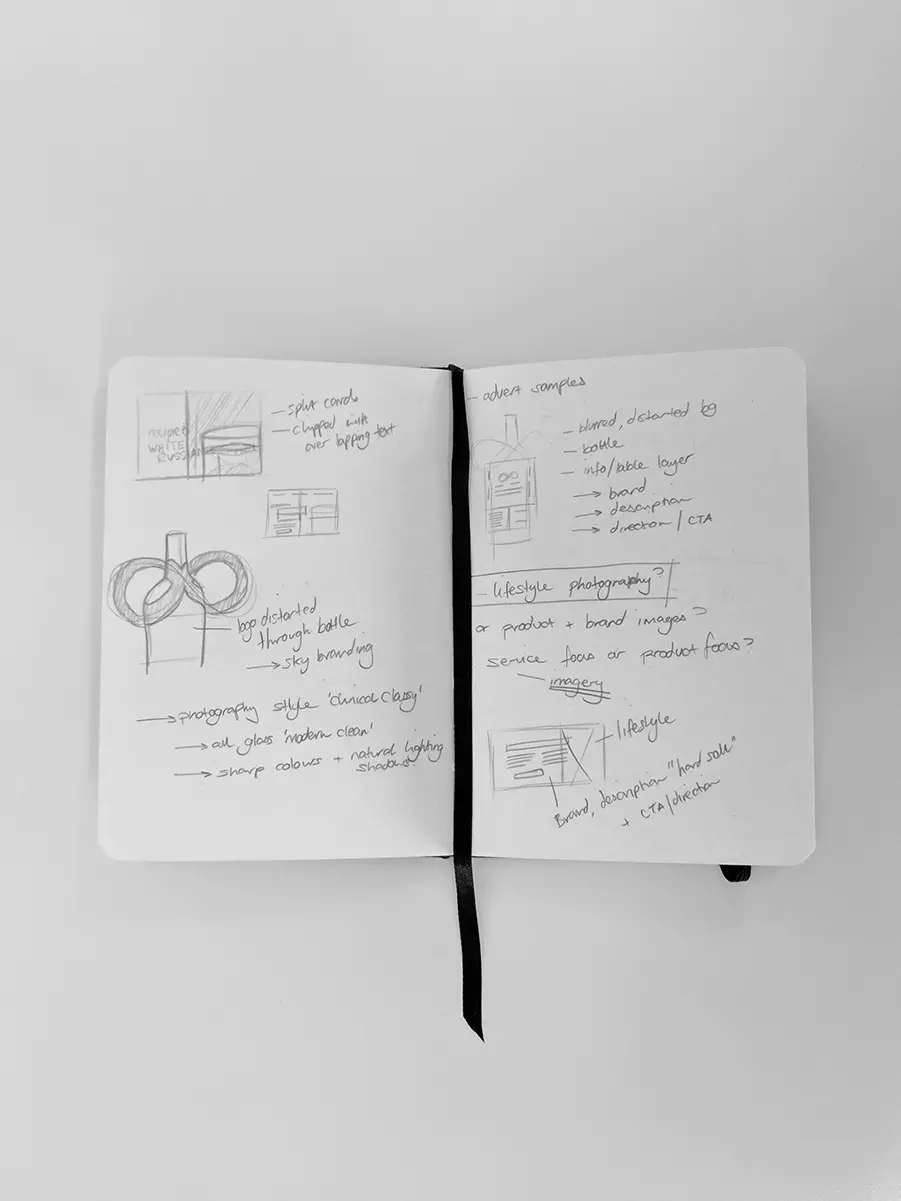 — split cards
— clipped with
over lapping text
WHITE
RUSSIAN
logo distorted
through bottle
→ sky branding
→ photography style 'clinical classy'
→ all glass 'modern clean'
→ sharp colours + natural lighting
shadows.
— advert samples
— blurred, distorted bg
— bottle
— info/lable layer
→ brand
→ description
→ direction / CTA
— lifestyle photography?
or product + brand images?
service focus or product focus?
imagery
— lifestyle
Brand, description "hard sell"
+ CTA/direction